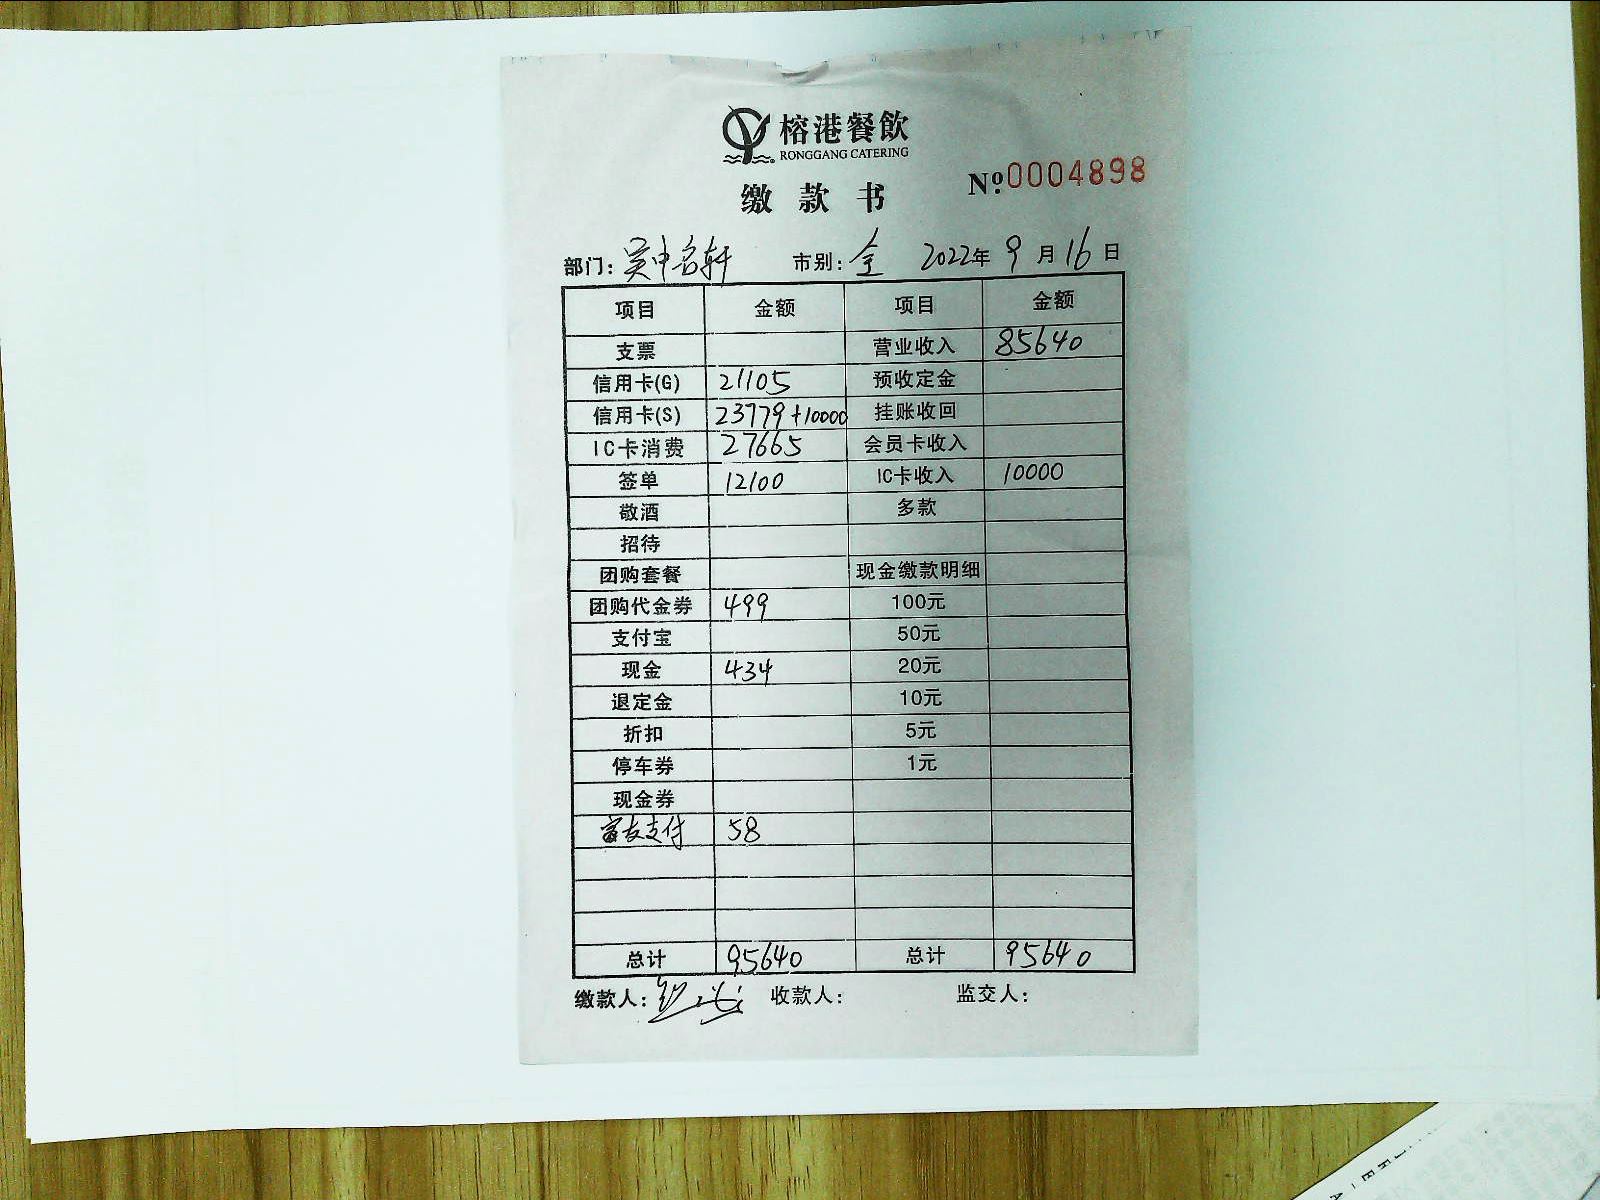 榕港餐飲
RONGGANG CATERING
缴款书 №0004898
部门：吴中名轩 市别：全 2022年9月16日
项目 金额 项目 金额
支票 营业收入 85640
信用卡(G) 21105 预收定金
信用卡(S) 23779+10000 挂账收回
IC卡消费 27665 会员卡收入
签单 12100 IC卡收入 10000
敬酒 多款
招待
团购套餐 现金缴款明细
团购代金券 499 100元
支付宝 50元
现金 434 20元
退定金 10元
折扣 5元
停车券 1元
现金券
富友支付 58
总计 95640 总计 95640
缴款人： 收款人： 监交人：